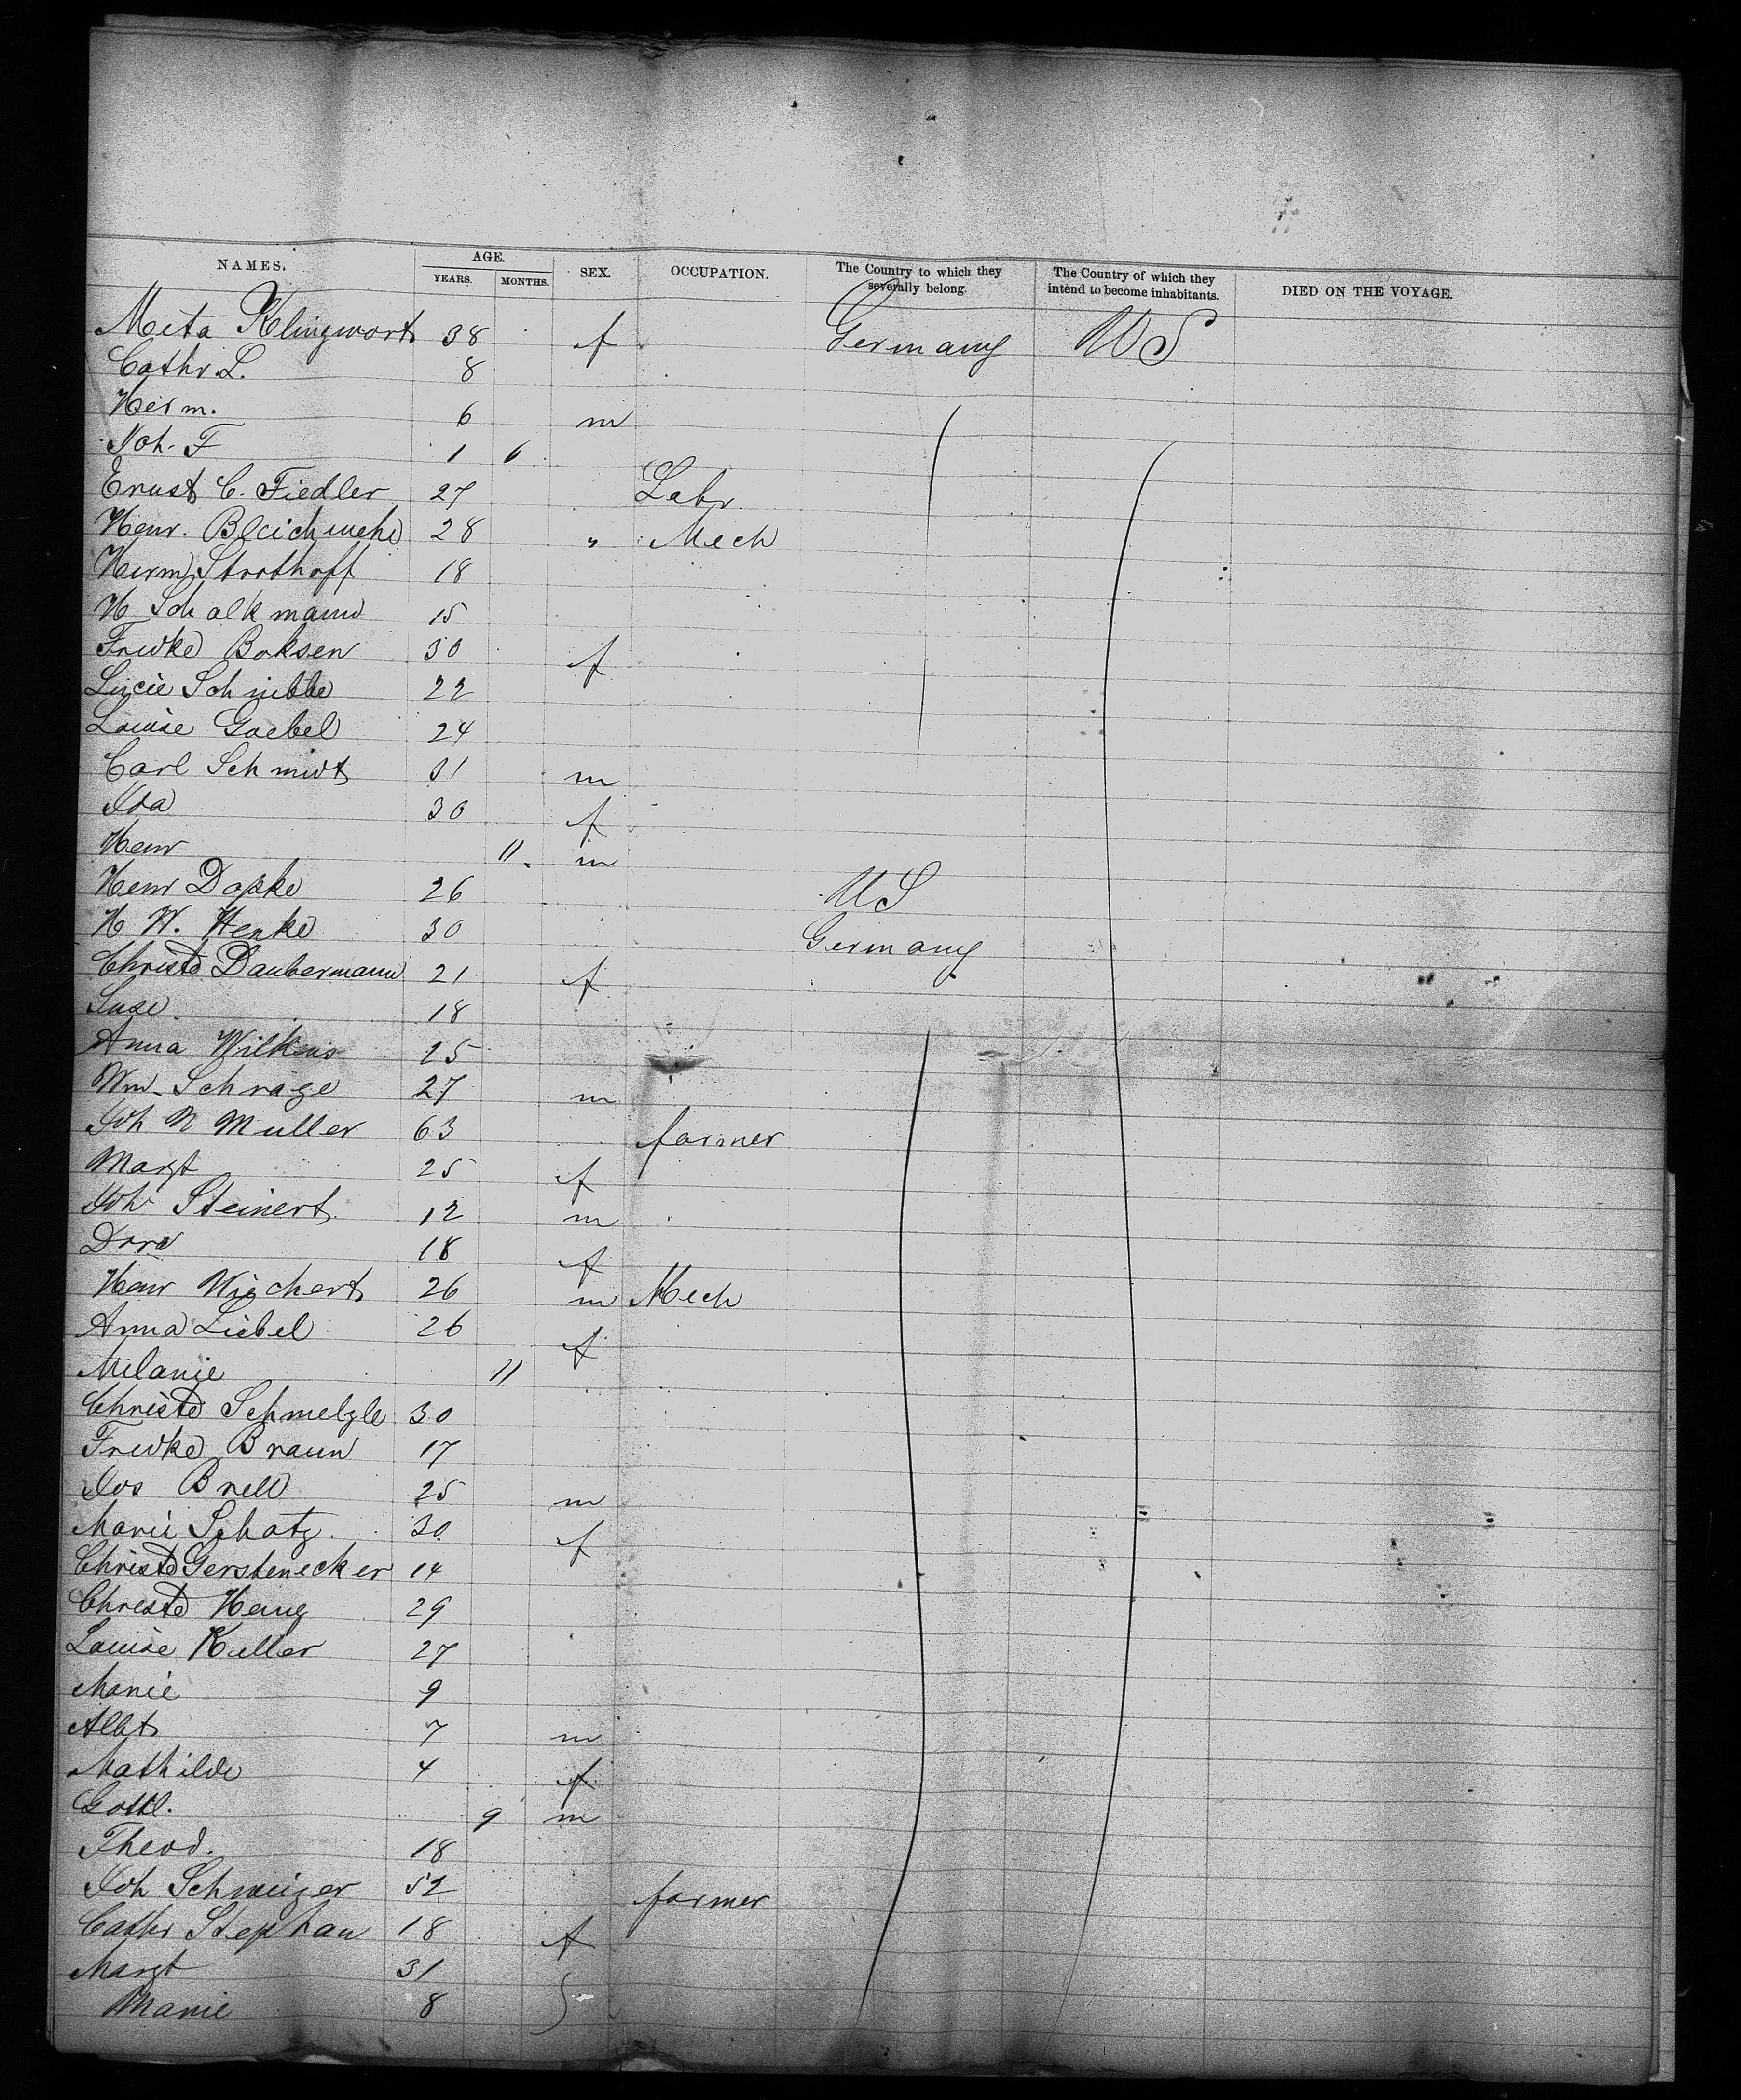 NAMES. AGE. YEARS. MONTHS. SEX. OCCUPATION. The Country to which they severally belong. The Country of which they intend to become inhabitants. DIED ON THE VOYAGE.
Meta Klingworth 38 f Germany US
Cathr. L. 8
Herm. 6 m
Joh. F 1 6
Ernst C. Fiedler 27 Labr.
Henr. 28 " Mech
Herm Strothoff 18
H Schalkmann 15
Fredke Boksen 30 f
Lucie Schnibbe 22
Louise Goebel 24
Carl Schmidt 31 m
Ida 30 f
Henr 11 m
Henr Dopke 26 US
H W. Henke 30 Germany
Christe Daubermann 21 f
Luse 18
Anna Wilkens 25
Wm Schrage 27 m
Joh N Muller 63 farmer
Margt 25 f
Joh Steinert 12 m
Dora 18 f
Henr Wichert 26 m Mech
Anna Liebel 26 f
Melanie 11
Christe Schmelzle 30
Fredke Braun 17
Jos Brell 25 m
Marie Schatz. 30 f
Christe Gerstenecker 14
Christe Haug 29
Louise Keller 27
Marie 9
Albt 7 m
Mathilde 4 f
Gottl. 9 m
Theod. 18
Joh Schweizer 52 farmer
Cathr Stephan 18 f
Margt 31
Marie 8